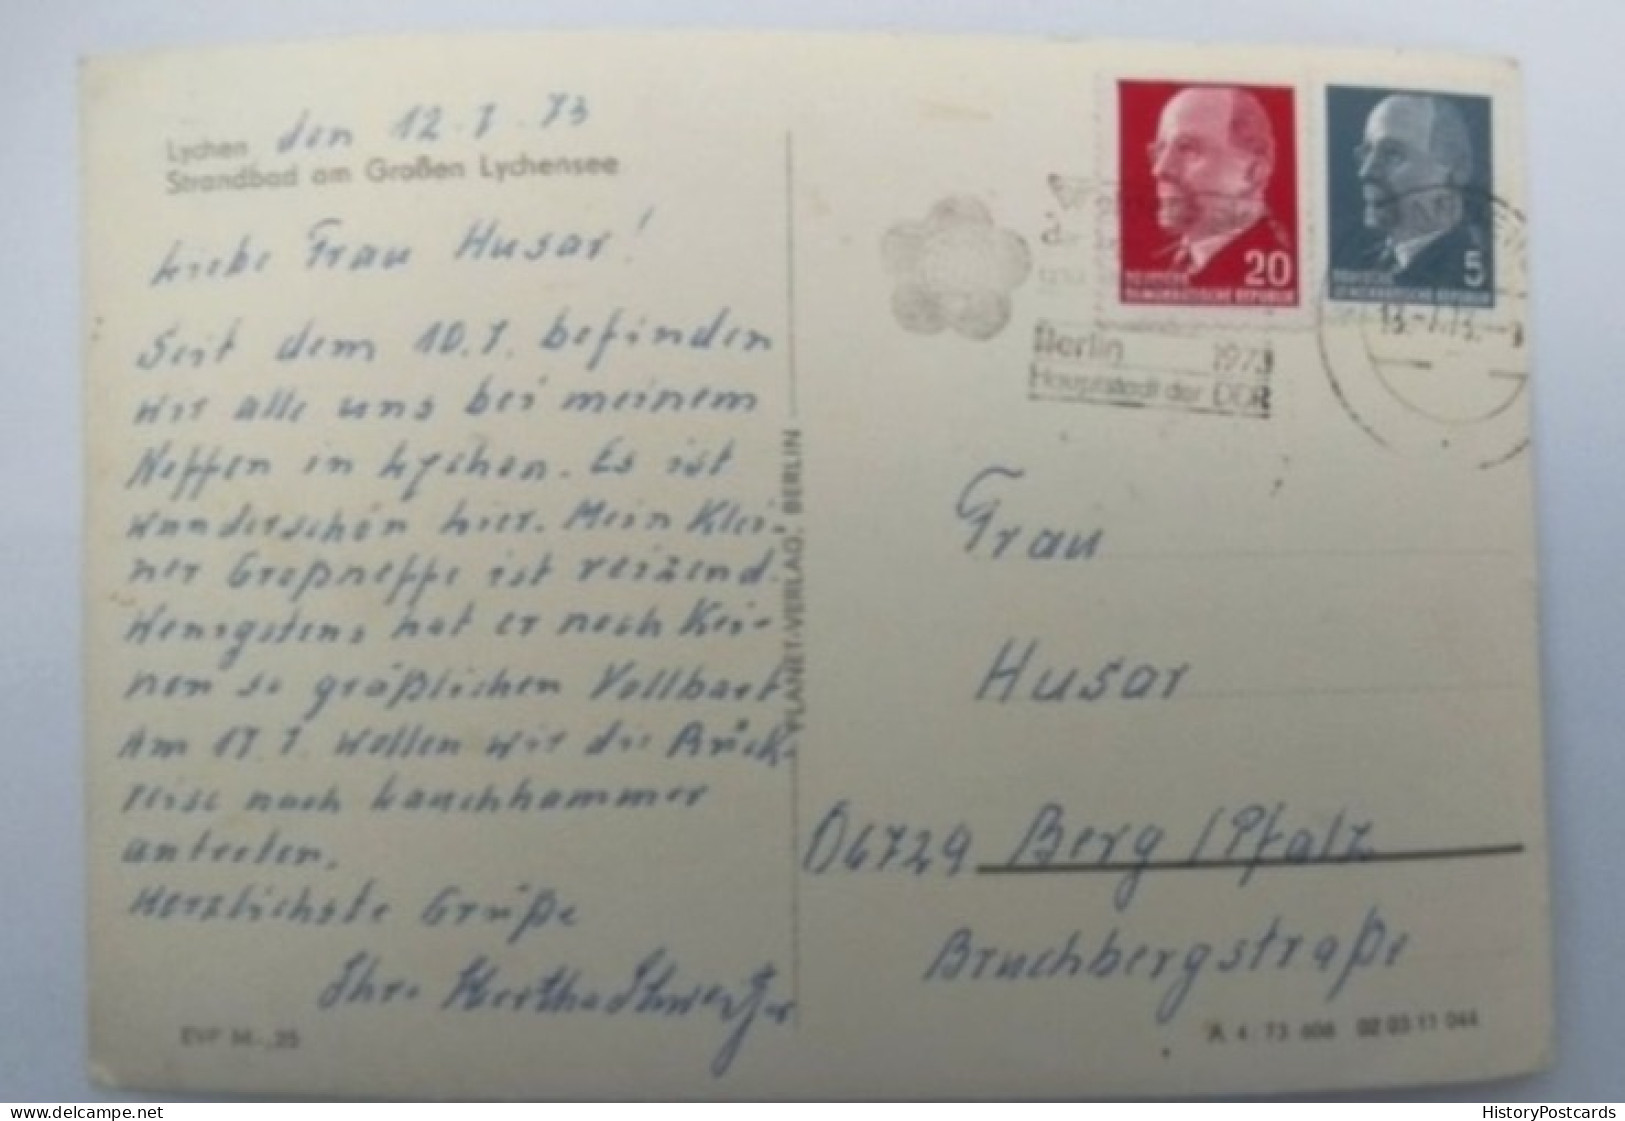 Lychen den 12.7.73
Strandbad am Großen Lychensee
Liebe Frau Husar!
Seit dem 10.7. befinden
wir alle uns bei meinem
Neffen in Lychen. Es ist
wunderschön hier. Mein klei-
ner Großneffe ist reizend.
Wenigstens hat er noch kei-
nen so gräßlichen Vollbart
Am 17.7. wollen wir die Rück-
reise nach Lauchhammer
antreten.
Herzlichste Grüße
Ihre Hertha
EVP M -,25
PLANET-VERLAG, BERLIN
20
DEUTSCHE
DEMOKRATISCHE REPUBLIK
5
DEUTSCHE
DEMOKRATISCHE REPUBLIK
Berlin 1973
Hauptstadt der DDR
13.-7.73.
Frau
Husar
D6729 Berg / Pfalz
Bruchbergstraße
A 4 73 608 02 03 11 044
delcampe.net
HistoryPostcards